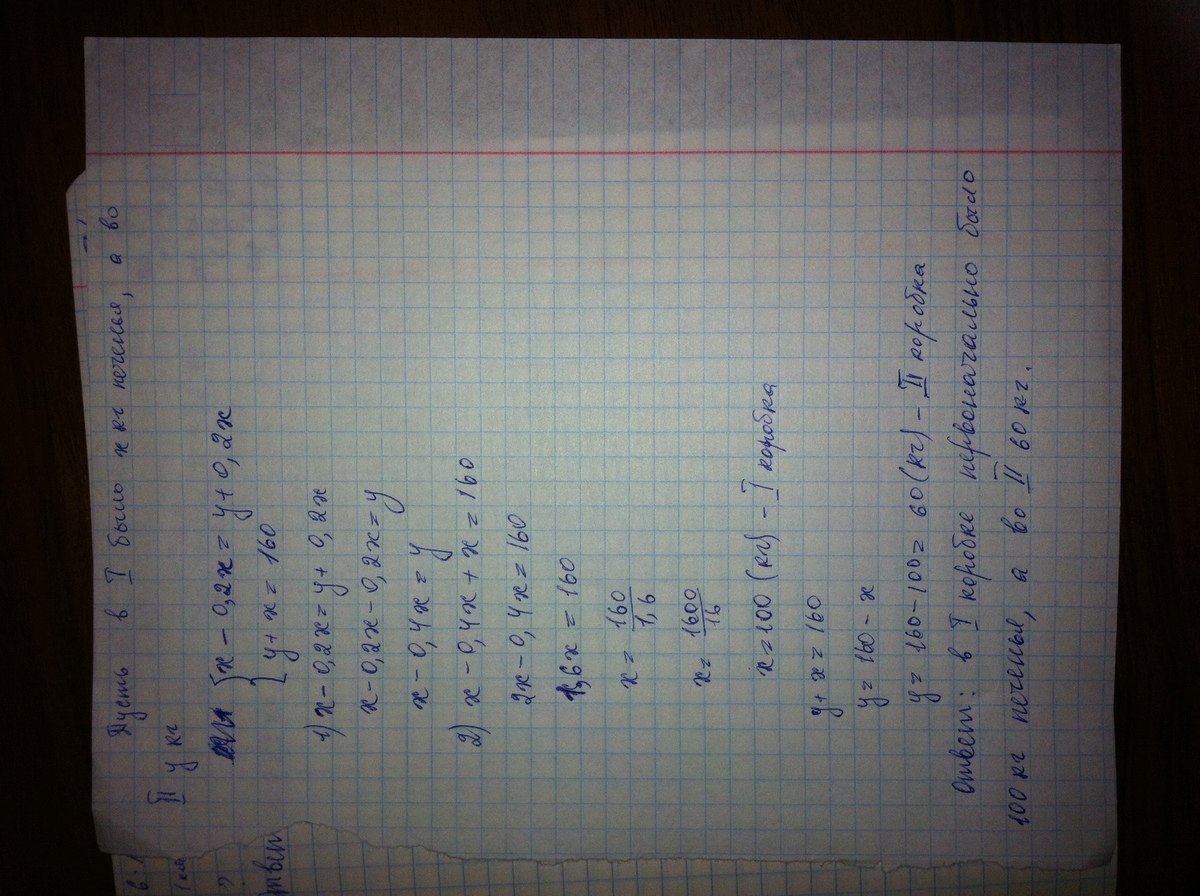 Пусть в I было x кг печенья, а во
II y кг
{ x - 0,2x = y + 0,2x
y + x = 160
1) x - 0,2x = y + 0,2x
x - 0,2x - 0,2x = y
x - 0,4x = y
2) x - 0,4x + x = 160
2x - 0,4x = 160
1,6x = 160
x = 160/1,6
x = 1600/16
x = 100 (кг) - I коробка
y + x = 160
y = 160 - x
y = 160 - 100 = 60 (кг) - II коробка
Ответ: в I коробке первоначально было
100 кг печенья, а во II 60 кг.
твет